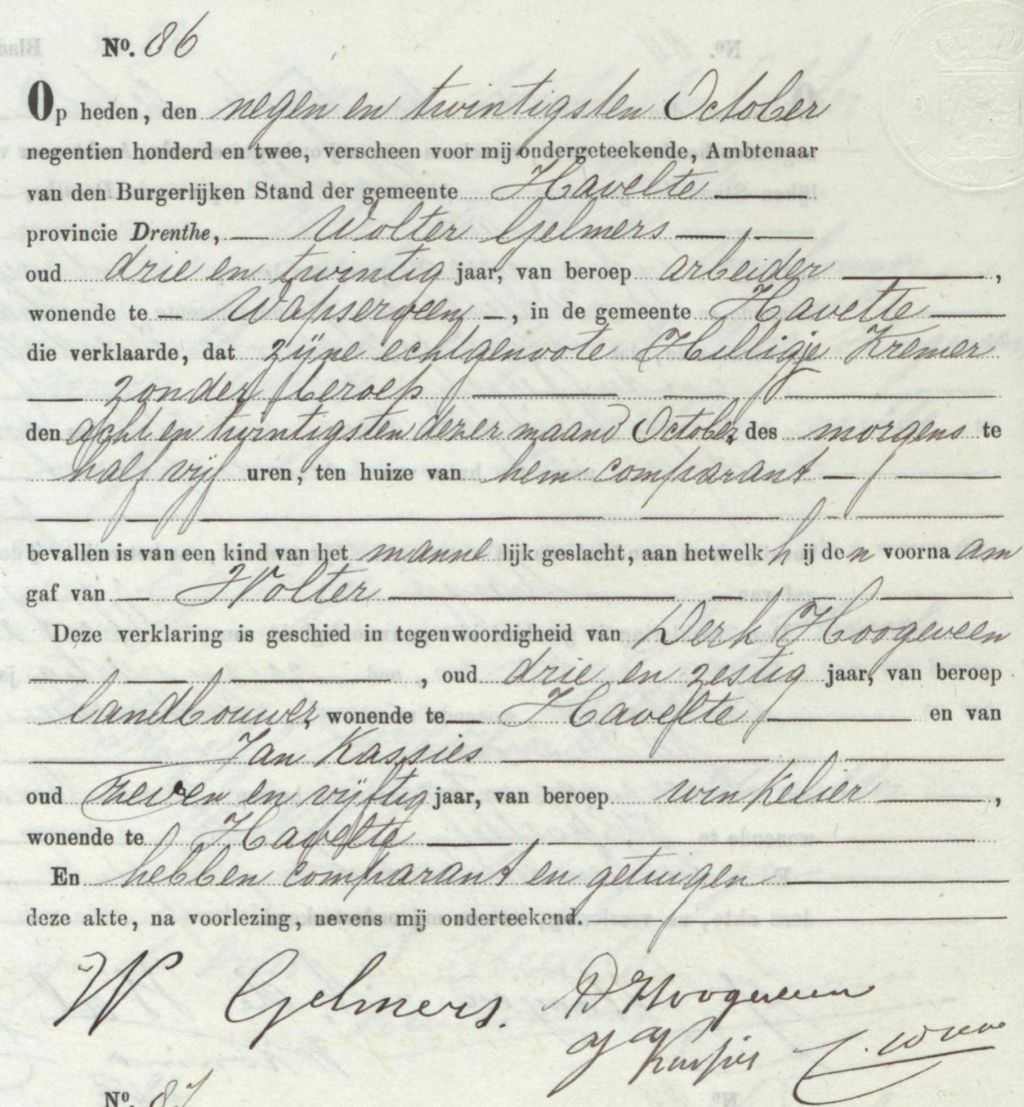 Nº. 86
Op heden, den negen en twintigsten October
negentien honderd en twee, verscheen voor mij ondergeteekende, Ambtenaar
van den Burgerlijken Stand der gemeente Havelte
provincie Drenthe, Wolter Gelmers
oud drie en twintig jaar, van beroep arbeider,
wonende te Wapserveen, in de gemeente Havelte
die verklaarde, dat zijne echtgenoote Hilligje Kremer
zonder beroep
den acht en twintigsten dezer maand October, des morgens te
half vijf uren, ten huize van hem comparant
bevallen is van een kind van het mannelijk geslacht, aan hetwelk hij den voornaam
gaf van Wolter
Deze verklaring is geschied in tegenwoordigheid van Derk Hoogeveen
, oud drie en zestig jaar, van beroep
landbouwer, wonende te Havelte en van
Jan Kassies
oud zeven en vijftig jaar, van beroep winkelier,
wonende te Havelte
En hebben comparant en getuigen
deze akte, na voorlezing, nevens mij onderteekend.
W Gelmers. D Hoogeveen
Nº. 87